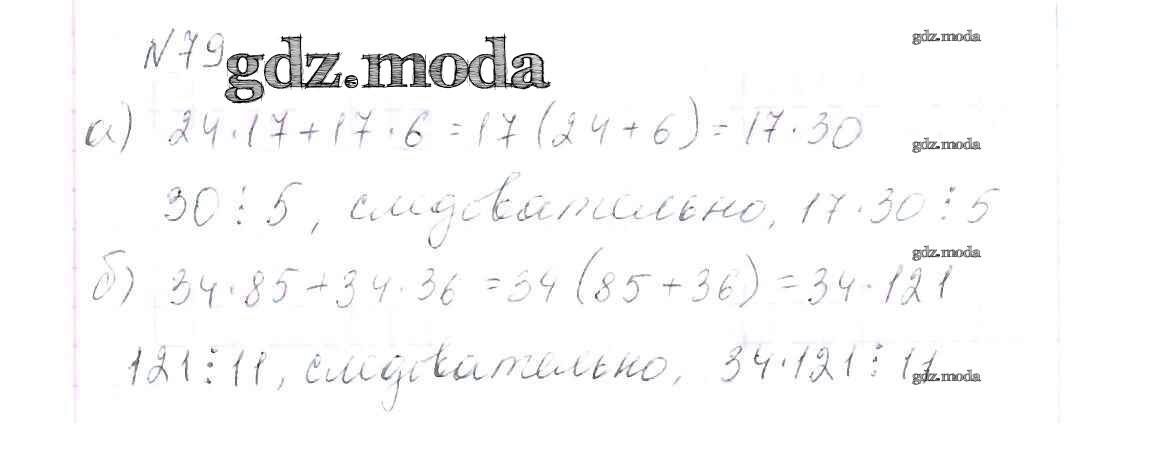 N 79 gdz.moda
gdz.moda
а) 24·17+17·6=17(24+6)=17·30
gdz.moda
30⋮5, следовательно, 17·30⋮5
gdz.moda
б) 34·85+34·36=34(85+36)=34·121
121⋮11, следовательно, 34·121⋮11
gdz.moda